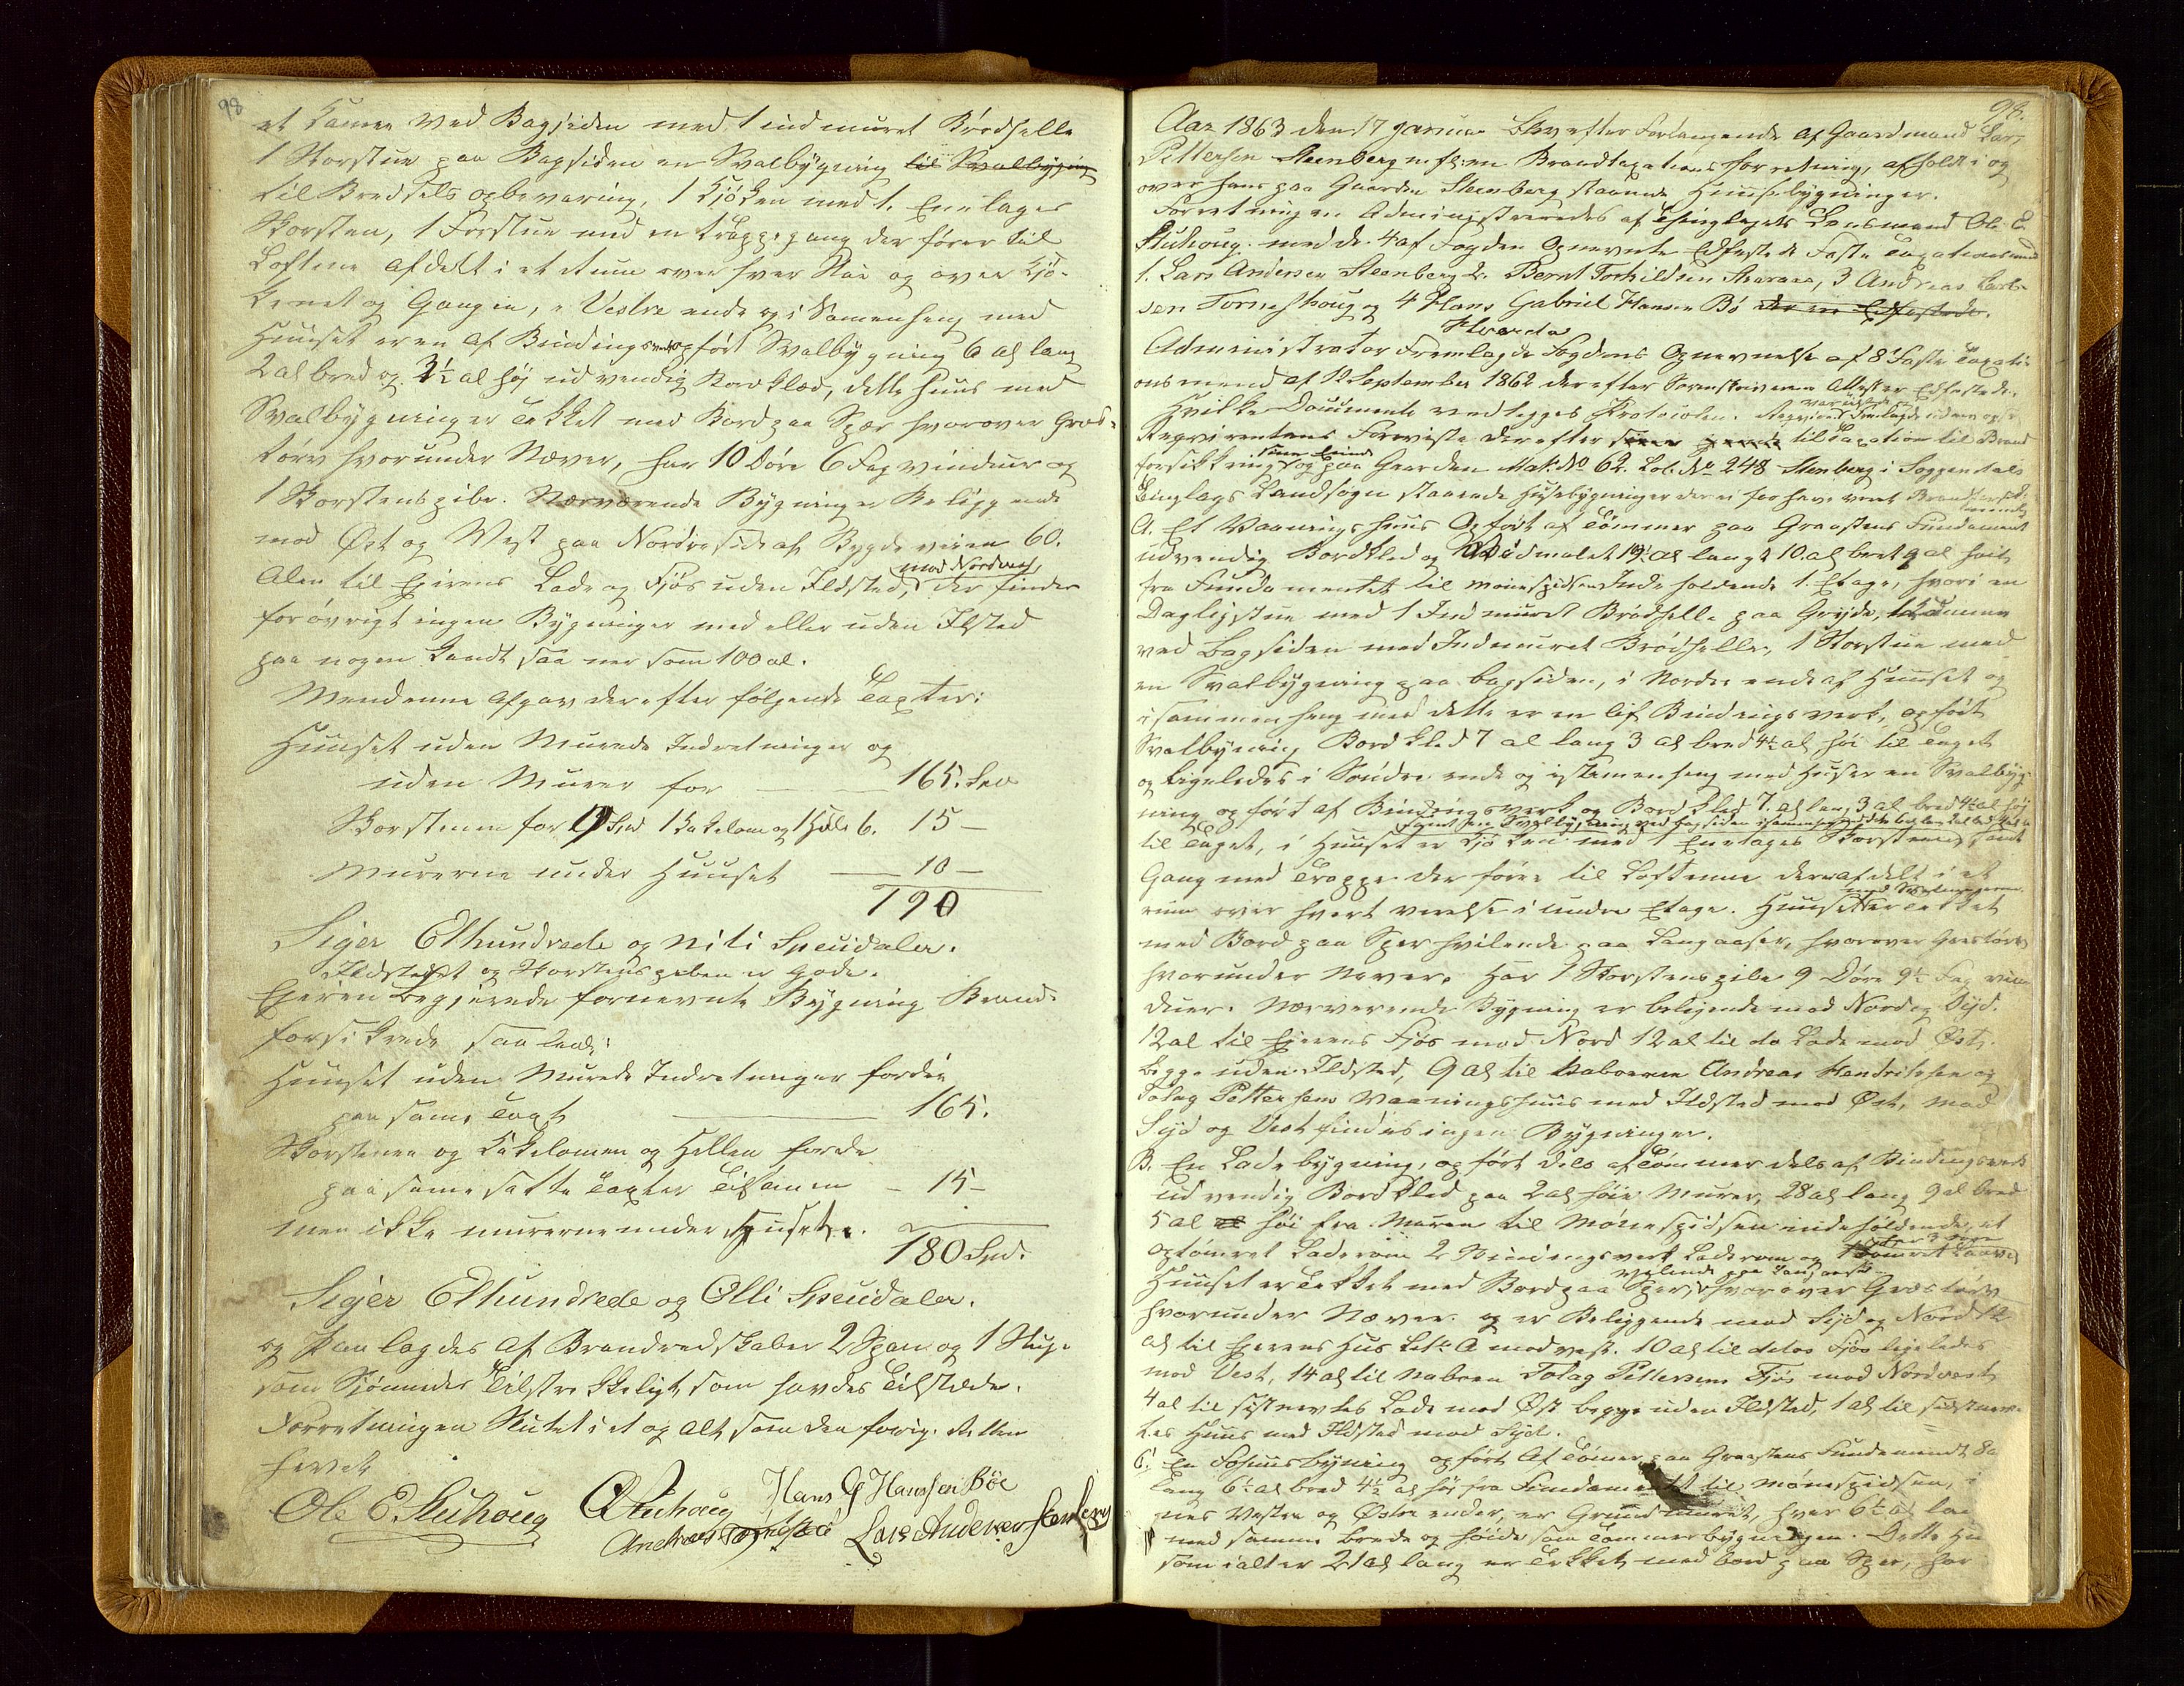 98
et Kamer ved Bagsiden med 1 indmuret Brödhelle
1 Storstue paa Bagsiden en Svalbygning til Svalbygning
til Brødsels opbevaring, 1 Kjöken med 1. Enetages
Skorsten, 1 Forstue med en Trappegang der förer til
Loftene afdelt i et Rum over hver Stue og over Kjö-
kenet og Gangen, i Vestre ende og i Samenheng med
Huuset er en af Bindingsverk opfört Svalbygning 6 al lang
2 al bred og 3½ al höj udvendig Bordklæd, dette Huus med
Svalbygninger er Tekket med Bord paa Sper hvorover Græs-
törv hvorunder Næver, har 10 Döre 6 Fag vinduer og
1 Skorstenspibe. Nærværende Bygning er Beliggende
mod Öst og Vest paa Nordre side af Bygdeveien 60.
Alen til Eierens Lade og Fjös uden Ildsted, mod Nordvest, der findes
forövrigt ingen Bygninger med eller uden Ilsted
paa nogen Kandt saa ner som 100 al.
Mendene Afgav derefter fölgende Taxter:
Huuset uden Murede Indretninger og
uden Murer for — 165. Spd
Skorstenen for 9 Spd 1 Kakelovn og 1 Helle 6. 15 —
Murerne under Huuset — 10 —
190
Siger Ethundrede og Niti Speidaler.
Ildstedet og Skorstenspiben er Gode.
Eieren Begjerede fornevnte Bygning Brand-
forsikrede saaledes:
Huuset uden Murede Indretninger for den
paa satte Taxt — 165.
Skorstenen og Kakelovnen og Hellen for de
paa samme satte Taxter Tilsamen — 15 —
men ikke murerne under Huuset.
180 Spd.
Siger Ethundrede og Otti Speidaler.
og Paalagdes af Brandredskaber 2 Span og 1 Stige
som Sjönnedes Tilstrekkeligt, som havdes Tilstede.
Forretningen Sluttet i et og Alt, som den forrige. Retten
hevet
Ole E Stuhoug OStuhoug Hans G Hanssen Böe
Andreas Tornsho Lars Andersen Stenberg
98.
Aar 1863 den 17 Januar Blev efter Forlangende af Gaardmand Lars
Pettersen Steenberg en Brandtaxations Forretning, afholdt i og
over hans paa Gaarden Steenberg staaende Huusebygninger.
Forretningen Administreredes af Thinglagets Lensmand Ole E
Stuhoug. med de 4 af Fogden Opnevnte Edfestede Faste Taxationsmend
1. Lars Andersen Steenberg 2. Bernt Torkildsen Skaraa, 3 Andreas Carl-
sen Torneshoug og 4 Hans Gabriel Hansen Bö der er Edfestede.
Hvorda
Administrator Fremlagde Fogdens Opnevnelse af 8 Faste Taxati-
onsmend af 12 September 1862 der efter Sorenskriverens Attest er Edfestede.
Hvilke Documenter vedlegges Protocolen.
Reqvirentens Foreviste derefter til Taxation til Brand
forsikkring sine paa Gaarden Mat: No 62. Löb. No 248 Stenberg i Soggendals
Tinglags Landsogn staaende Husebygninger der ei forhave veret Brandforsikrede
A. Et Vaanings Huus Opfört af Tömmer paa Graastens Fundament
udvendig Bordkled og Rödmalet 19½ al lang 10. al bred 9 al höit
fra Fundamentet til Mönespidsen Inde holdende 1. Etage, hvori en
Dagligstue med 1 Indmuret Brödhelle paa Gryde, 1 Kammer
ved Bagsiden med Indmuret Brödhelle, 1 Storstue med
en Svalbygning paa Bagsiden, i Nordre ende af Huuset og
i sammenheng med dette er en af Bindingsverk, opfört
Svalbyning Bordkled 7 al lang 3 al bred 4½ al, höi til Taget
og ligeledes i Söndre ende og i sammenheng med Huset en Svalbyg-
ning opfört af Bindingsverk og Bordkled 7. al lang 3 al bred 4½ al höj
til Taget, i Huuset er Kjöken med 1 Enetages Skorsten, samt
Gang med Trappe der förer til Loftene der er afdelt i et
rum over hvert verelse i undre Etage. Huuset er tekket
med Bord paa Sper hvilende paa Langaaser, hvorover Grestörv
hvorunder Never. Har 1 Skorstenspibe 9 Döre 9½ Fag vin-
duer. Nærverende Bygning er beligende mod Nord og Syd.
12 al til Eierens Fjös mod Nord 12 al til do Lade mod Öst,
begge uden Ildsted, 9 al til Naboerne Andreas Hendriksen og
Tolag Pettersens Vaaningshuus med Ildsted mod Öst, mod
Syd og Vest findes ingen Bygninger.
B. En Ladebygning, opfört dels af Tömmer dels af Bindingsverk
udvendig Bordkled paa 2 al höie Murer, 28 al lang 9 al bred
5 al höi fra Muren til Mönespidsen indeholdende, et
optömret Laderöm 2 Bindingsverk Laderom og
Huuset er Tekket med Bord paa Sper, hvilende paa Langaaser hvorover Grestörv
hvorunder Never. og er Beliggende mod Syd og Nord 12
al til Eierens Hus Litr A mod vest. 10 al til detos Fjös ligeledes
mod Vest, 14 al til Naboen Tolag Pettersens Fjös mod Nordvest
4 al til sistnevtes Lade mod Öst begge uden Ildsted, 1 al til sidstnev-
tes Huus med Ildsted mod Syd.
C. En Fjöhusbyning opfört Af Tömer paa Graastens Fundement 8 a
lang 6½ al bred 4½ al höj fra Fundamentet til Mönespidsen, i
nes Vestre og Östre ender, er Grundmuret, hver 6½ al lan
med samme Brede og höide som Tömmerbygningen. Dette Hu
som i alt er 21 al lang er Tekket med bord paa Sper, hvor